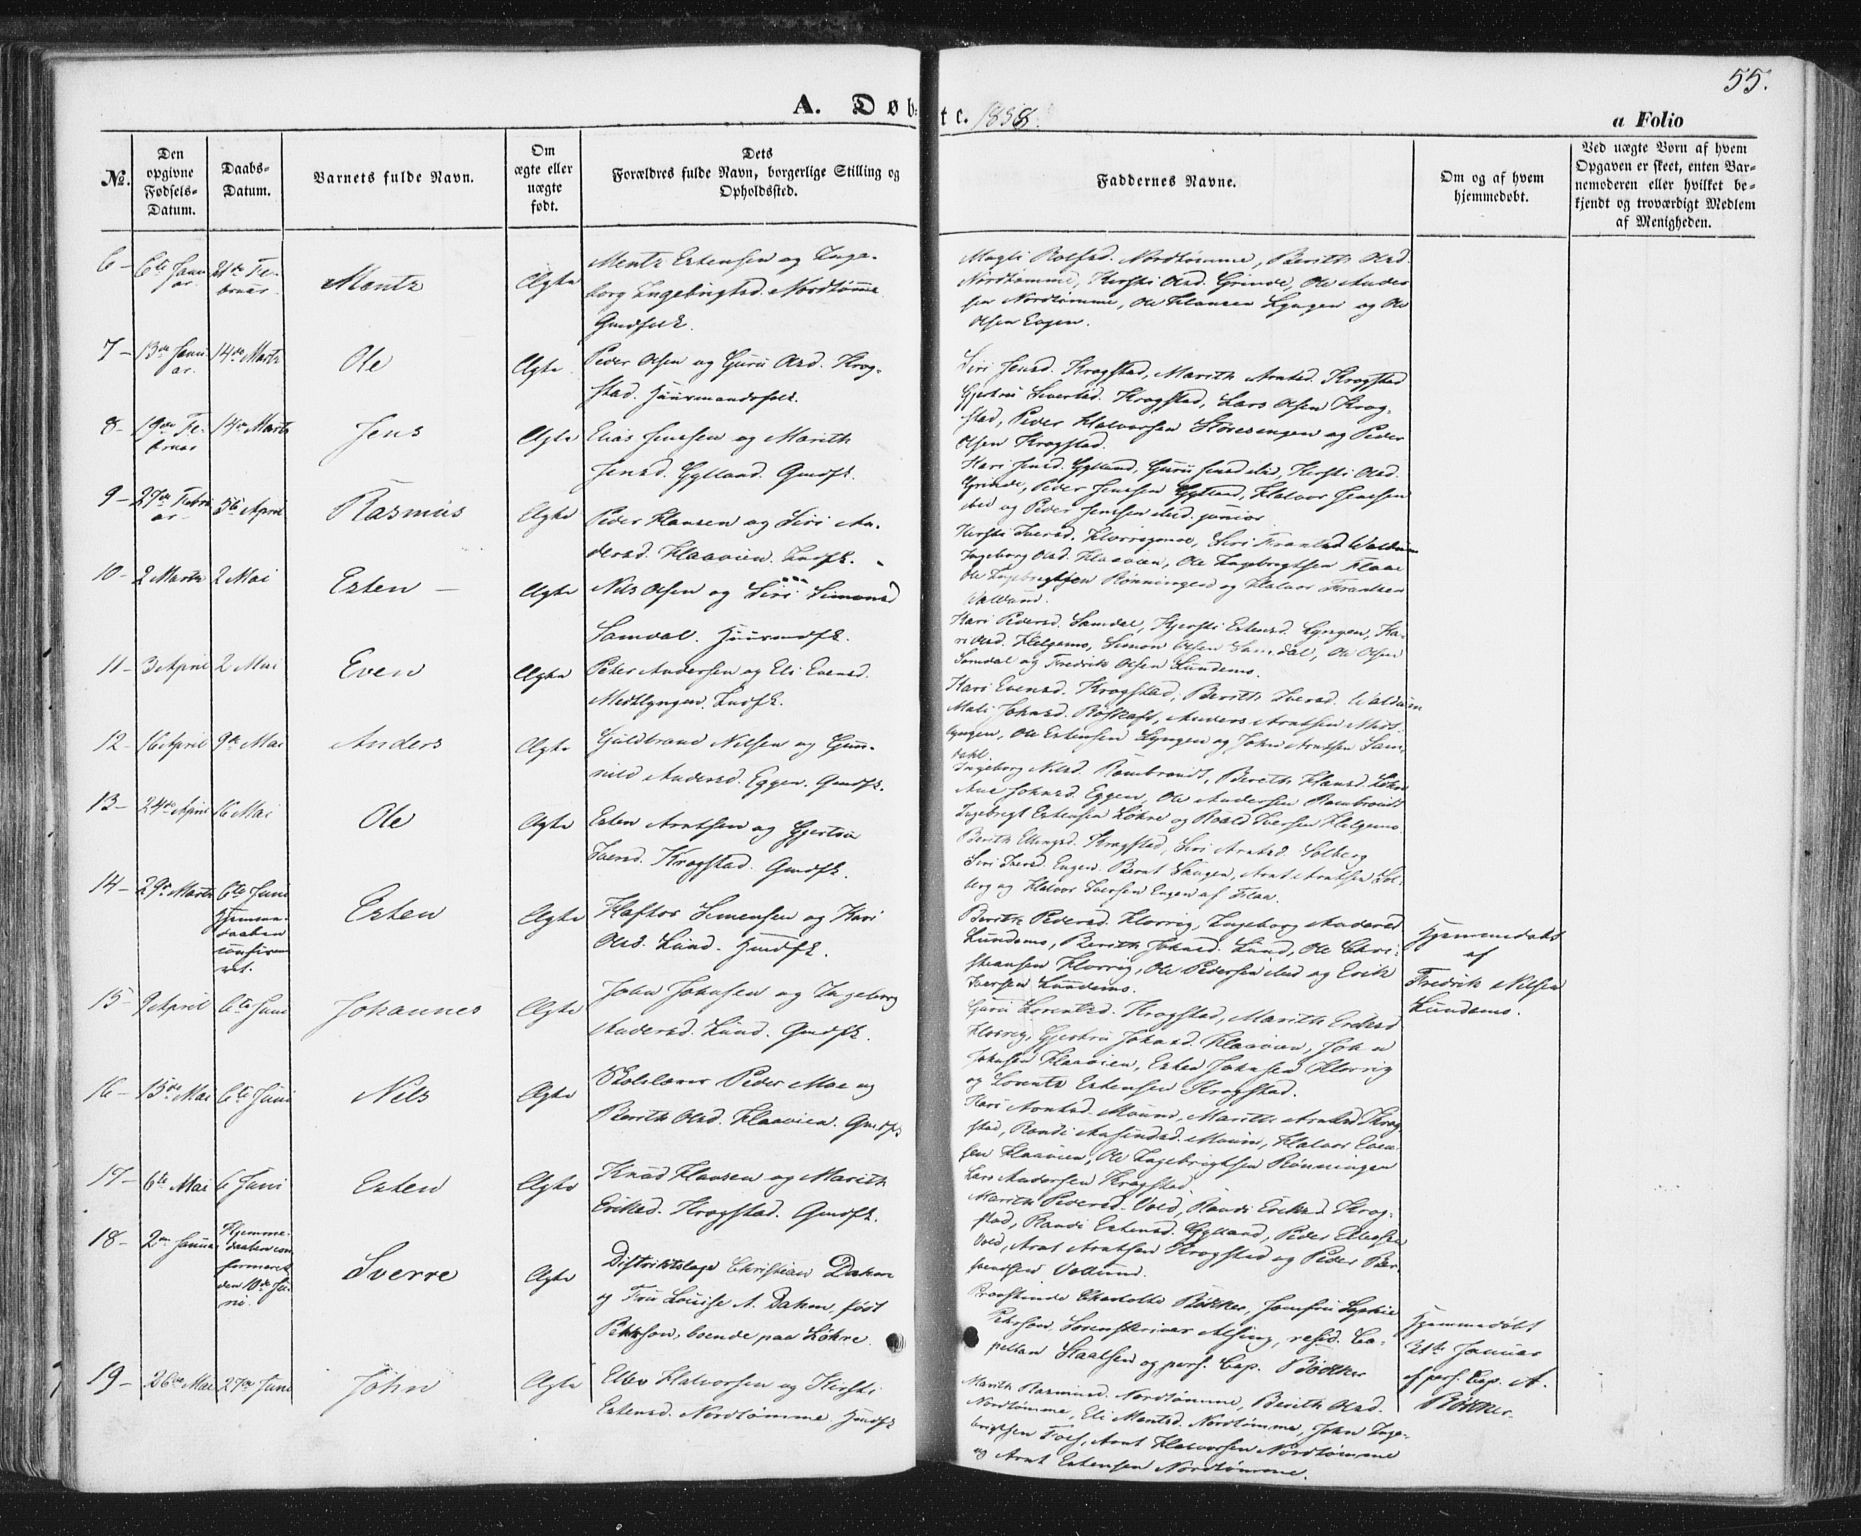 55.
A. Døbte. 1858.
a Folio
No.
Den opgivne Fødsels-Datum.
Daabs-Datum.
Barnets fulde Navn.
Om ægte eller uægte født.
Dets Forældres fulde Navn, borgerlige Stilling og Opholdssted.
Faddernes Navne.
Om og af hvem hjemmedøbt.
Ved uægte Born af hvem Opgaven er skeet, enten Barnemoderen eller hvilket bekjendt og troværdigt Medlem af Menigheden.
6 - 6te Januar 21de Februar Mentz Ægte
Mentz Estensen og Inge-
borg Ingebrigtsd. Nordtømme
Gmdfolk.
Magli Rolfsd. Nordtømme, Berith Olsd.
Nordtømme, Kirsti Olsd. Grinde, Ole Ander
sen Nordtømme, Ole Klausen Lyngen og Ole
Olsen Eggen.
7 - 13de Januar 14de Marts Ole Ægte
Peder Olsen og Guru Olsd. Krog-
stad. Huusmandsfolk.
Siri Jensd. Krogstad, Marith Arntsd. Krogstad
Gjertru Sivertsd. Krogstad, Lars Olsen Krog-
stad, Peder Halvorsen Storesengen og Peder
Olsen Krogstad.
8 - 19de Februar 14de Marts Jens Ægte
Elias Jensen og Marith
Jensd. Gylland. Gmdfk.
Kari Jensd. Gylland, Guru Jensd ibid, Kirsti Olsd.
Grinde, Peder Jensen Gylland, Halvor Jensen
ibid og Peder Jensen ibid. junior
9 - 27de Februar 5te April Rasmus Ægte
Peder Klausen og Siri An-
dersd. Klaavien. Indfk.
Kirsti Iversd. Horrigmoe, Siri Frantsd Waldum
Ingeborg Olsd. Klaavien, Ole Ingebrigtsen Flaae
Ole Ingebrigtsen Rønningen og Halvor Frantsen
Waldum.
10 - 2 Marts 2 Mai Esten - Ægte
Nils Olsen og Siri Simonsd
Samdal. Huusmdfk.
Kari Pedersd. Samdal, Kjersti Estensd. Lyngen, Ka-
ri Olsd. Helgemo, Simon Olsen Samdal, Ole Olsen
Samdal og Fredrik Olsen Lundemo.
11 - 3 April 2 Mai Even Ægte
Peter Andersen og Eli Evensd.
Midtlyngen. Indfk.
Kari Evensd. Krogstad, Berith Iversd. Waldum
Mali Johnsd. Røskaft, Anders Arntsen Midt-
lyngen, Ole Estensen Lyngen og John Arntsen Sam-
dahl.
12 - 16 April 9de Mai Anders Ægte
Guldbrand Nilsen og Gun-
nild Andersd. Eggen. Gmdfk.
Ingeborg Nilsd. Rambraudt, Berith Klausd. Løhre
Ane Johnsd. Eggen, Ole Andersen Rambraudt
Ingebrigt Estensen Løhre og Roald Iversen Helgemo.
13 - 24de April 16 Mai Ole Ægte
Esten Arntsen og Gjertru
Iversd. Krogstad. Gmdfk.
Berith Ellingsd. Krogstad, Siri Arntsd. Solberg
Siri Iversd. Engen, Bernt Skugen, Arnt Arntsen Sol-
berg og Halvor Iversen Engen af Flaa.
14 - 29de Marts 6te Juni Hjemme-daaben confirmeret. Esten Ægte
Haftor Simensen og Kari
Olsd. Lund. Hmdfk.
Berith Pedersd. Horrig, Ingeborg Andersd
Lundemo, Berith Johnsd. Lund, Ole Chri-
stiansen Horrig, Ole Pedersen ibid og Erik
Iversen Lundemo.
Hjemmedøbt
af
Fredrik Nilsen
Lundemo.
15 - 9 April 6te Juni Johannes Ægte
John Johnsen og Ingeborg
Andersd. Lund. Gmdfk.
Guru Lorentsd. Krogstad, Marith Eriksd
Horrig, Gjertru Johnsd. Klaavien, John
Johnsen Klaavien, Esten Johnsen Horrig
og Lorents Estensen Krogstad.
16 - 15de Mai 6te Juni Nils Ægte
Skolelærer Peder Moe og
Berith Olsd. Klaavien. Gmdfk
Kari Arntsd. Moum, Marith Arntsd. Krog
stad, Randi Amundsd. Moum, Halvor Even
sen Klaavien, Ole Ingebrigtsen Rønningen
Lars Andersen Krogstad.
17 - 6te Mai 6 Juni Esten Ægte
Knud Klausen og Marith
Eriksd. Krogstad. Gmdfk.
Marith Pedersd. Vold, Randi Eriksd. Krog-
stad, Randi Estensd. Gylland, Peder Ellefsen
Vold, Arnt Arntsen Krogstad og Peder Ber-
svendsen Vollum.
18 - 2den Januar Hjemme-daaben confirmeret den 10de Juni. Sverre Ægte
Distriktslæge Christian Dahm
og Fru Louise A. Dahm, født
Pehrson, boende paa Løhre.
Provstinde Charlotte Bødtker, Jomfru Sophie
Pehrson, Sorenskriver Alsing, resid. Ca-
pellan Staalsen og pers. Cap. Bødtker
Hjemmedøbt
21te Januar
af pers. Cap. A.
Bødtker.
19 - 26de Mai 27de Juni John Ægte
Ellev Halvorsen og Kirsti
Estensd. Nordtømme Hmdfk
Marith Rasmusd. Nordtømme, Berith Olsd.
Nordtømme, Eli Mentsd. Nordtømme, John Inge-
brigtsen Foss, Arnt Halvorsen Nordtømme
og Arnt Estensen Nordtømme.